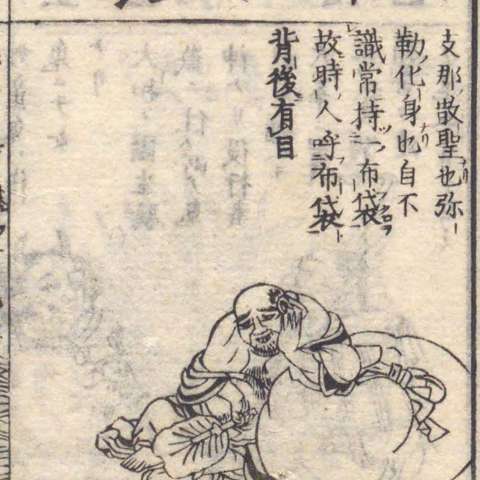 支那ノ散聖也弥
勒ノ化身也自不
識常持一布袋
故時ノ人呼布袋
背後有目